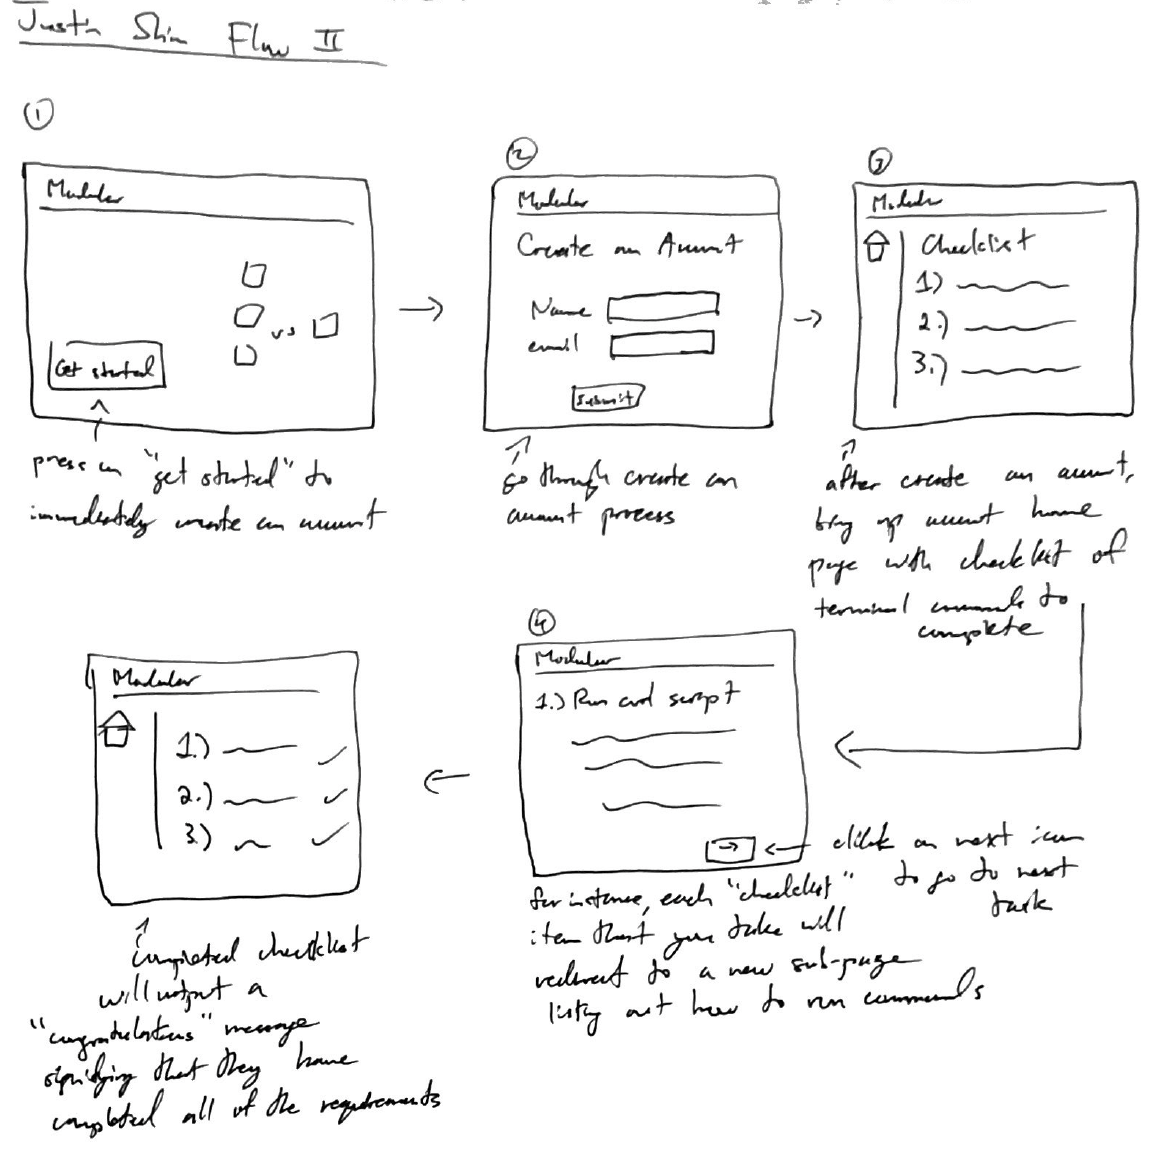 Justin Shin Flow II
1
Modular
vs
Get started
press on "get started" to
immediately create an account
2
Modular
Create an Account
Name
email
Submit
go through create an
account process
3
Modular
Checklist
1.)
2.)
3.)
after create an account,
bring up account home
page with checklist of
terminal commands to
complete
4
Modular
1.) Run curl script
click on next icon
to go to next
task
for instance, each "checklist"
item that you take will
redirect to a new sub-page
listing out how to run commands
Modular
1.)
2.)
3.)
completed checklist
will output a
"congratulations" message
signifying that they have
completed all of the requirements